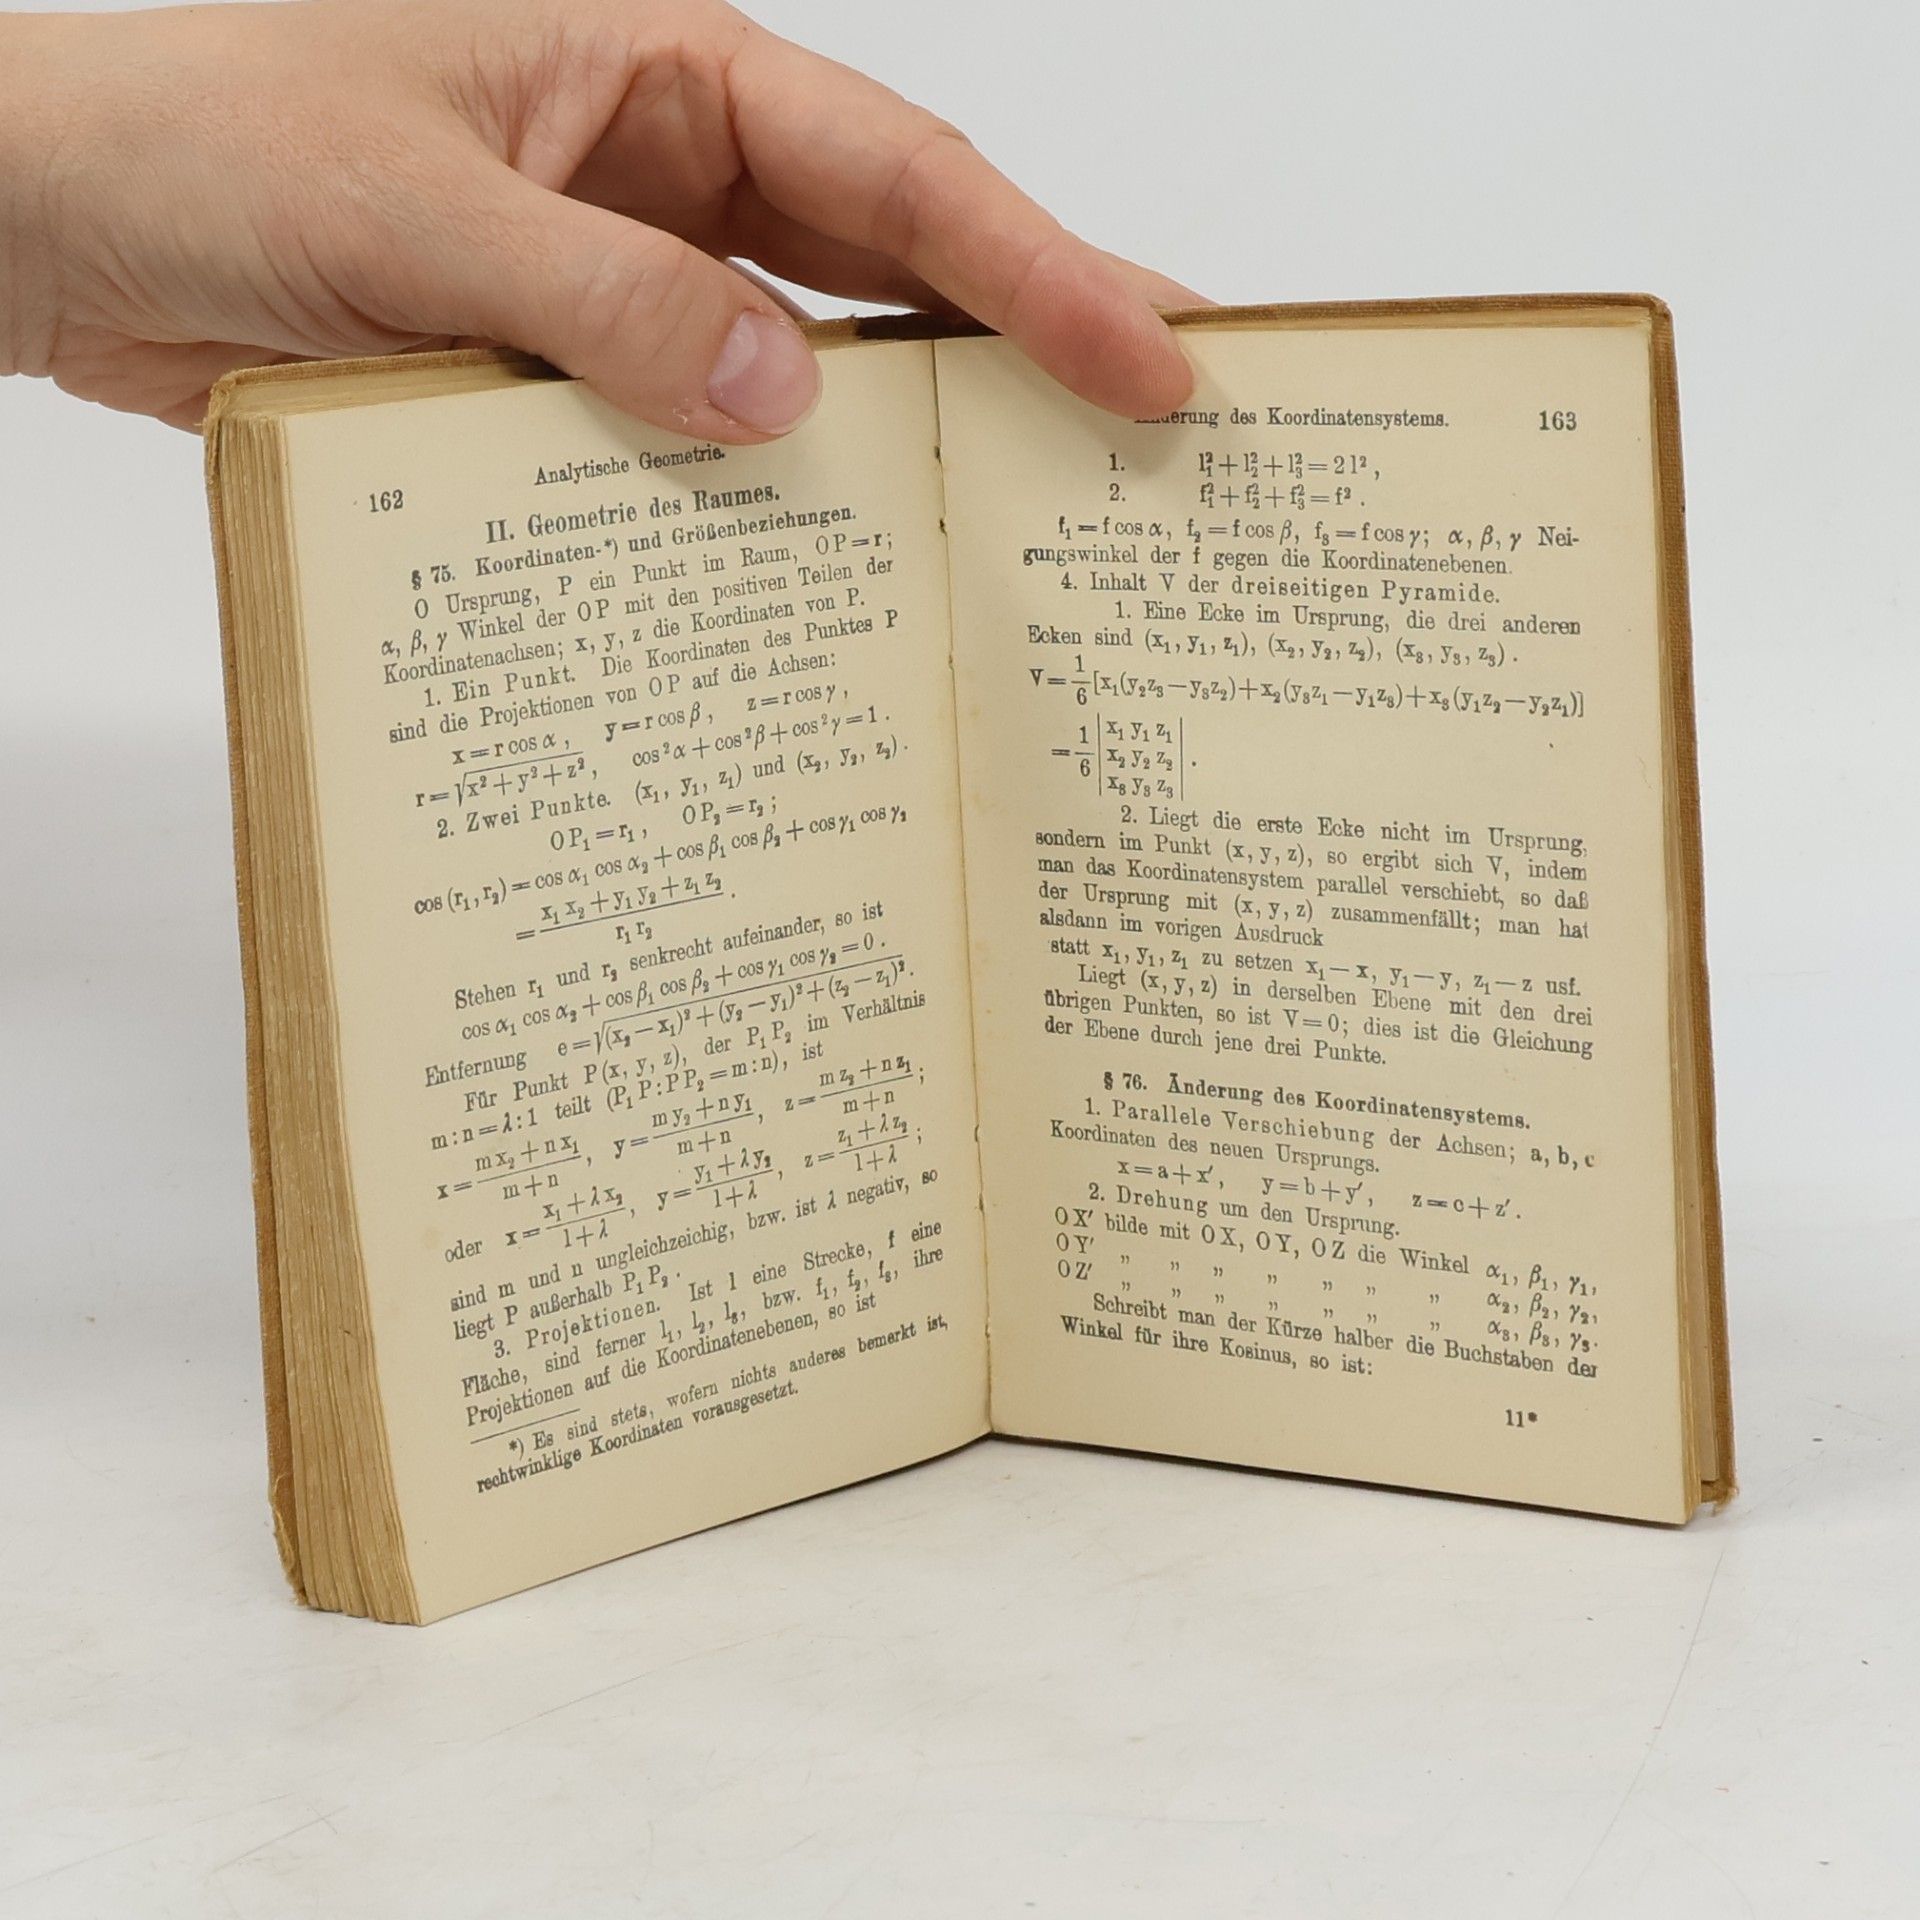 162
Analytische Geometrie.
II. Geometrie des Raumes.
§ 75. Koordinaten-*) und Größenbeziehungen.
O Ursprung, P ein Punkt im Raum, OP=r;
α, β, γ Winkel der OP mit den positiven Teilen der
Koordinatenachsen; x, y, z die Koordinaten von P.
1. Ein Punkt. Die Koordinaten des Punktes P
sind die Projektionen von OP auf die Achsen:
x = r cos α, y = r cos β, z = r cos γ,
r = √(x² + y² + z²), cos² α + cos² β + cos² γ = 1.
2. Zwei Punkte. (x₁, y₁, z₁) und (x₂, y₂, z₂).
OP₁ = r₁, OP₂ = r₂;
cos (r₁, r₂) = cos α₁ cos α₂ + cos β₁ cos β₂ + cos γ₁ cos γ₂
= (x₁ x₂ + y₁ y₂ + z₁ z₂) / (r₁ r₂).
Stehen r₁ und r₂ senkrecht aufeinander, so ist
cos α₁ cos α₂ + cos β₁ cos β₂ + cos γ₁ cos γ₂ = 0.
Entfernung e = √((x₂ − x₁)² + (y₂ − y₁)² + (z₂ − z₁)²).
Für Punkt P(x, y, z), der P₁P₂ im Verhältnis
m : n = λ : 1 teilt (P₁P : PP₂ = m : n), ist
x = (m x₂ + n x₁)/(m + n), y = (m y₂ + n y₁)/(m + n), z = (m z₂ + n z₁)/(m + n);
oder x = (x₁ + λ x₂)/(1 + λ), y = (y₁ + λ y₂)/(1 + λ), z = (z₁ + λ z₂)/(1 + λ);
sind m und n ungleichzeichig, bzw. ist λ negativ, so
liegt P außerhalb P₁P₂.
3. Projektionen. Ist l eine Strecke, f eine
Fläche, sind ferner l₁, l₂, l₃, bzw. f₁, f₂, f₃, ihre
Projektionen auf die Koordinatenebenen, so ist
*) Es sind stets, wofern nichts anderes bemerkt ist,
rechtwinklige Koordinaten vorausgesetzt.
Änderung des Koordinatensystems. 163
1. l₁² + l₂² + l₃² = 2 l²,
2. f₁² + f₂² + f₃² = f².
f₁ = f cos α, f₂ = f cos β, f₃ = f cos γ; α, β, γ Nei-
gungswinkel der f gegen die Koordinatenebenen.
4. Inhalt V der dreiseitigen Pyramide.
1. Eine Ecke im Ursprung, die drei anderen
Ecken sind (x₁, y₁, z₁), (x₂, y₂, z₂), (x₃, y₃, z₃).
V = 1/6 [x₁(y₂z₃ − y₃z₂) + x₂(y₃z₁ − y₁z₃) + x₃(y₁z₂ − y₂z₁)]
= 1/6 | x₁ y₁ z₁
x₂ y₂ z₂
x₃ y₃ z₃ |.
2. Liegt die erste Ecke nicht im Ursprung,
sondern im Punkt (x, y, z), so ergibt sich V, indem
man das Koordinatensystem parallel verschiebt, so daß
der Ursprung mit (x, y, z) zusammenfällt; man hat
alsdann im vorigen Ausdruck
statt x₁, y₁, z₁ zu setzen x₁ − x, y₁ − y, z₁ − z usf.
Liegt (x, y, z) in derselben Ebene mit den drei
übrigen Punkten, so ist V = 0; dies ist die Gleichung
der Ebene durch jene drei Punkte.
§ 76. Änderung des Koordinatensystems.
1. Parallele Verschiebung der Achsen; a, b, c
Koordinaten des neuen Ursprungs.
x = a + x′, y = b + y′, z = c + z′.
2. Drehung um den Ursprung.
OX′ bilde mit OX, OY, OZ die Winkel α₁, β₁, γ₁,
OY′ „ „ „ „ „ „ „ α₂, β₂, γ₂,
OZ′ „ „ „ „ „ „ „ α₃, β₃, γ₃.
Schreibt man der Kürze halber die Buchstaben der
Winkel für ihre Kosinus, so ist:
11*